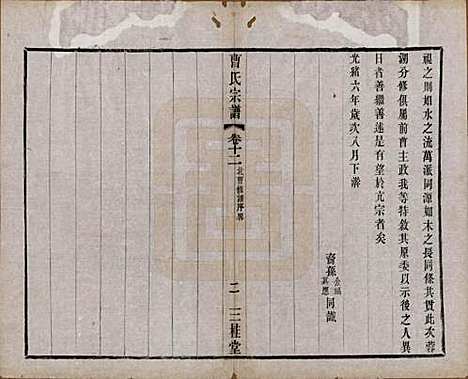 視之則如水之流萬派同源如木之長同條共貫此次蓉
湖分修俱屬前曹主政我等特敘其原委以示後之人異
日者善繼善述是有望於亢宗者矣
光緒六年歲次八月下澣
裔孫
同識
曹氏宗譜
卷十二
北曹修譜序畧
二
三桂堂